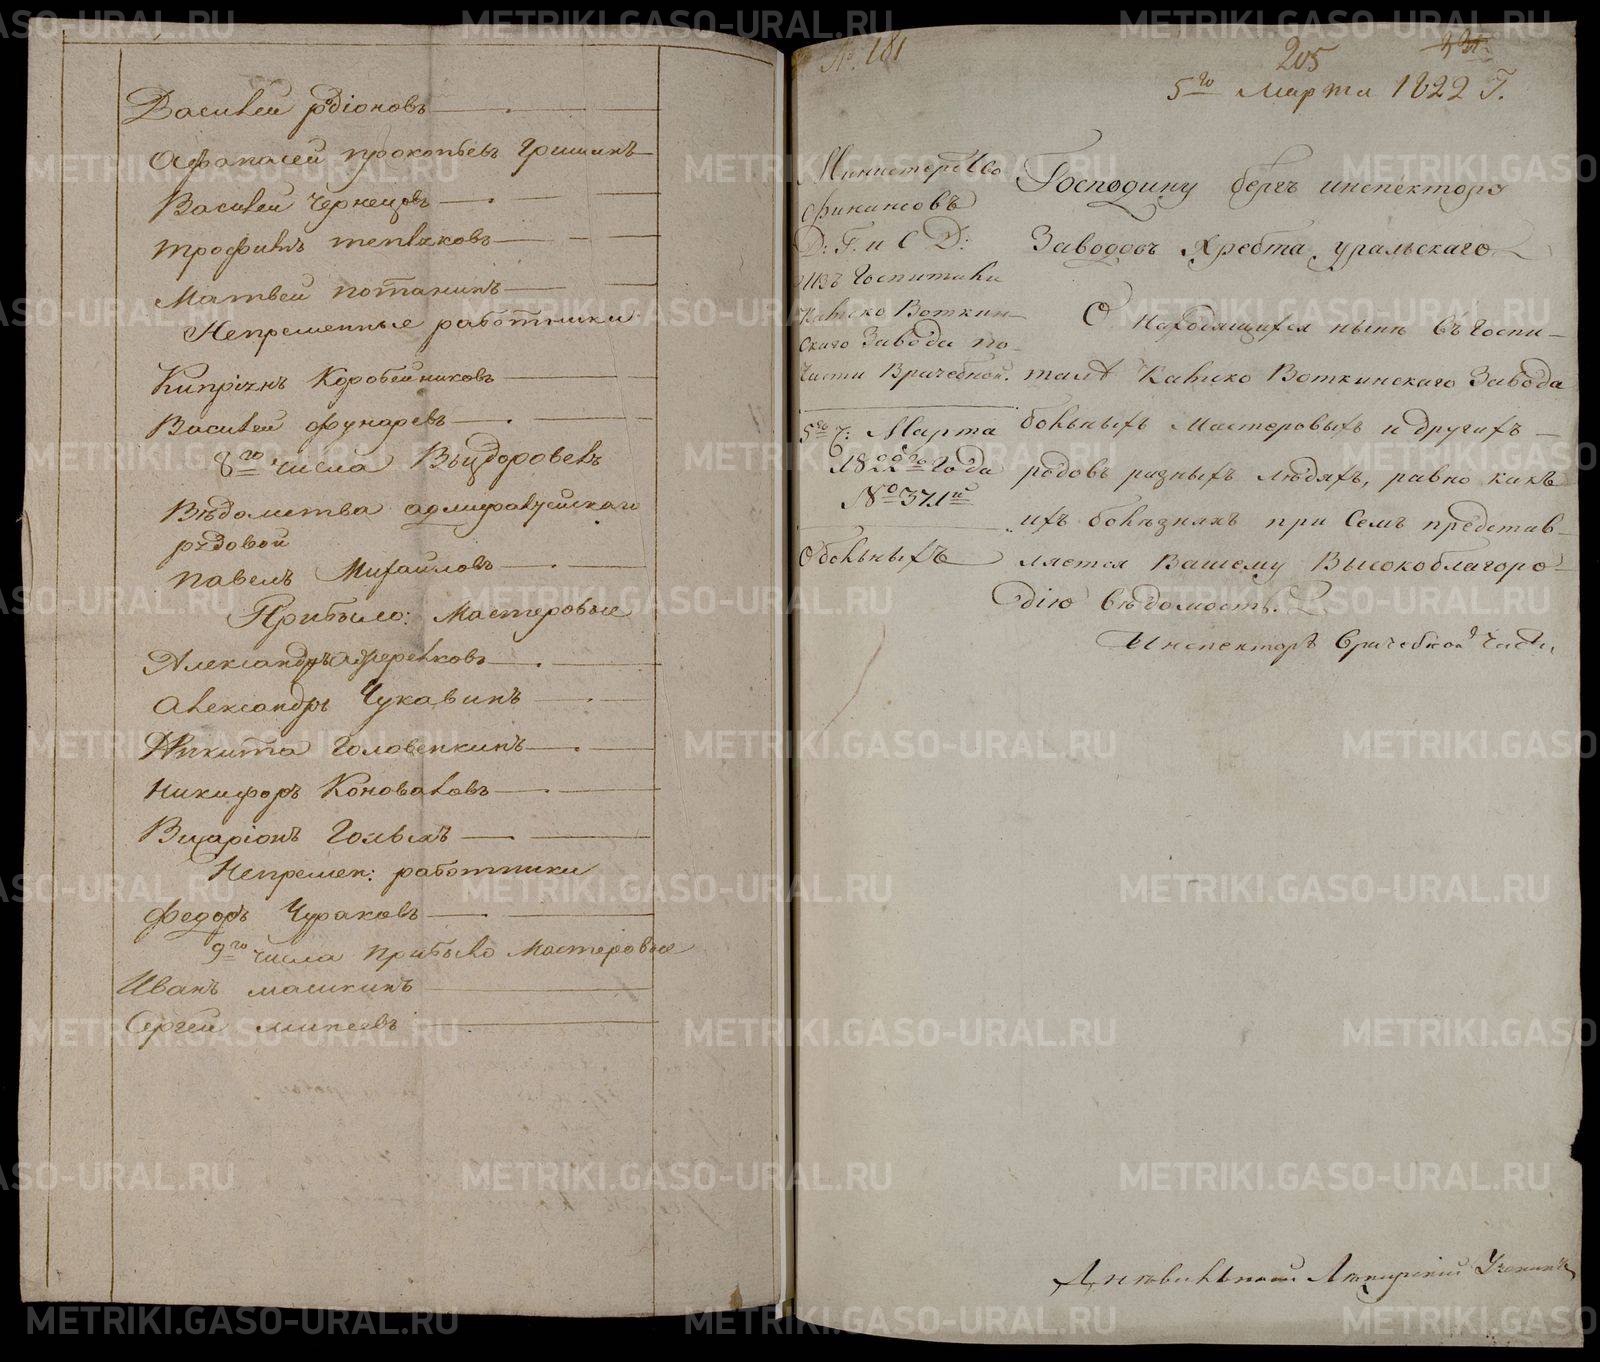 Василеи Родіоновъ
Афанасеи прокопьевъ Гришинъ
Василеи Чернецовъ
трофимъ
Матвеи потанинъ
Непременные работники
Кипріянъ Коробейниковъ
Василеи фунаревъ
8го числа Выздоровелъ
Вѣдомства
рядовой
павелъ Михаиловъ
Прибыло: Мастеровые
Александръ
Александръ Чукавинъ
Никита Головенкинъ
Никифоръ Коноваловъ
Висаріонъ
Непремен: работники
Федоръ Чураковъ
9го числа прибыло Мастеровые
Иванъ машкинъ
Сергеи михеевъ
№ 181
205
5го Марта 1822 Г.
Министерство
финансовъ
Д: Г. и С Д:
изъ Госпиталя
Камско Воткин-
скаго Завода по
Части Врачебной.
5го Ч: Марта
1822го Года
№ 371й
О больныхъ
Господину бергъ инспектору
Заводовъ Хребта уральскаго
О находящихся нынѣ въ Госпи-
талѣ Камско Воткинскаго Завода
больныхъ Мастеровыхъ и другихъ
родовъ разныхъ людяхъ, равно какъ
ихъ болѣзняхъ при Семъ представ-
ляется Вашему Высокоблагоро-
дію вѣдомость.
Инспекторъ врачебной части,
Лѣкарскій Ученикъ
METRIKI.GASO-URAL.RU